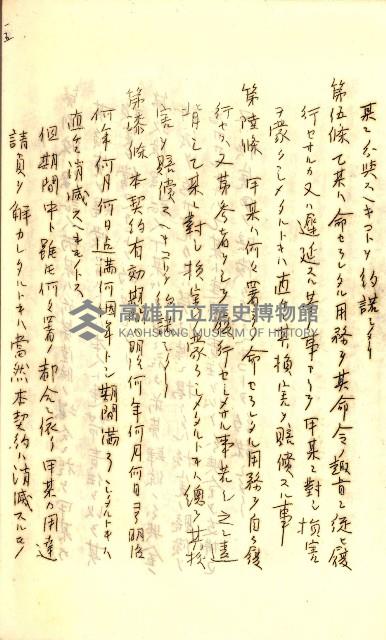 某ニ給與スヘキコトヲ約諾シタリ
第伍條 乙某ハ命セラレタル用務ヲ其命令ノ趣旨ニ從ヒ履
行セサルカ又ハ遲延スル等ノ事アリテ甲某ニ對シ損害
ヲ蒙ラシメタルトキハ直ニ其損害ヲ賠償スル事
第陸條 甲某ハ何々署ノ命セラレタル用務ヲ自ラ履
行セス又第參者ヲシテ履行セシメサル事若シ之ニ違
背シテ某ニ對シ損害ヲ蒙ラシメタルトキハ總テ其損
害ヲ賠償スヘキコトヲ
第漆條 本契約有効期限ハ明治何年何月何日ヨリ明治
何年何月何日迄滿何個年トシ期間滿了シタルトキハ
直ニ消滅スヘキモノトス
但期間中ト雖モ何々署ノ都合ニ依リ甲某カ用達
請負ヲ解カレタルトキハ當然本契約ハ消滅スルモノ
高雄市立歷史博物館
KAOHSIUNG MUSEUM OF HISTORY